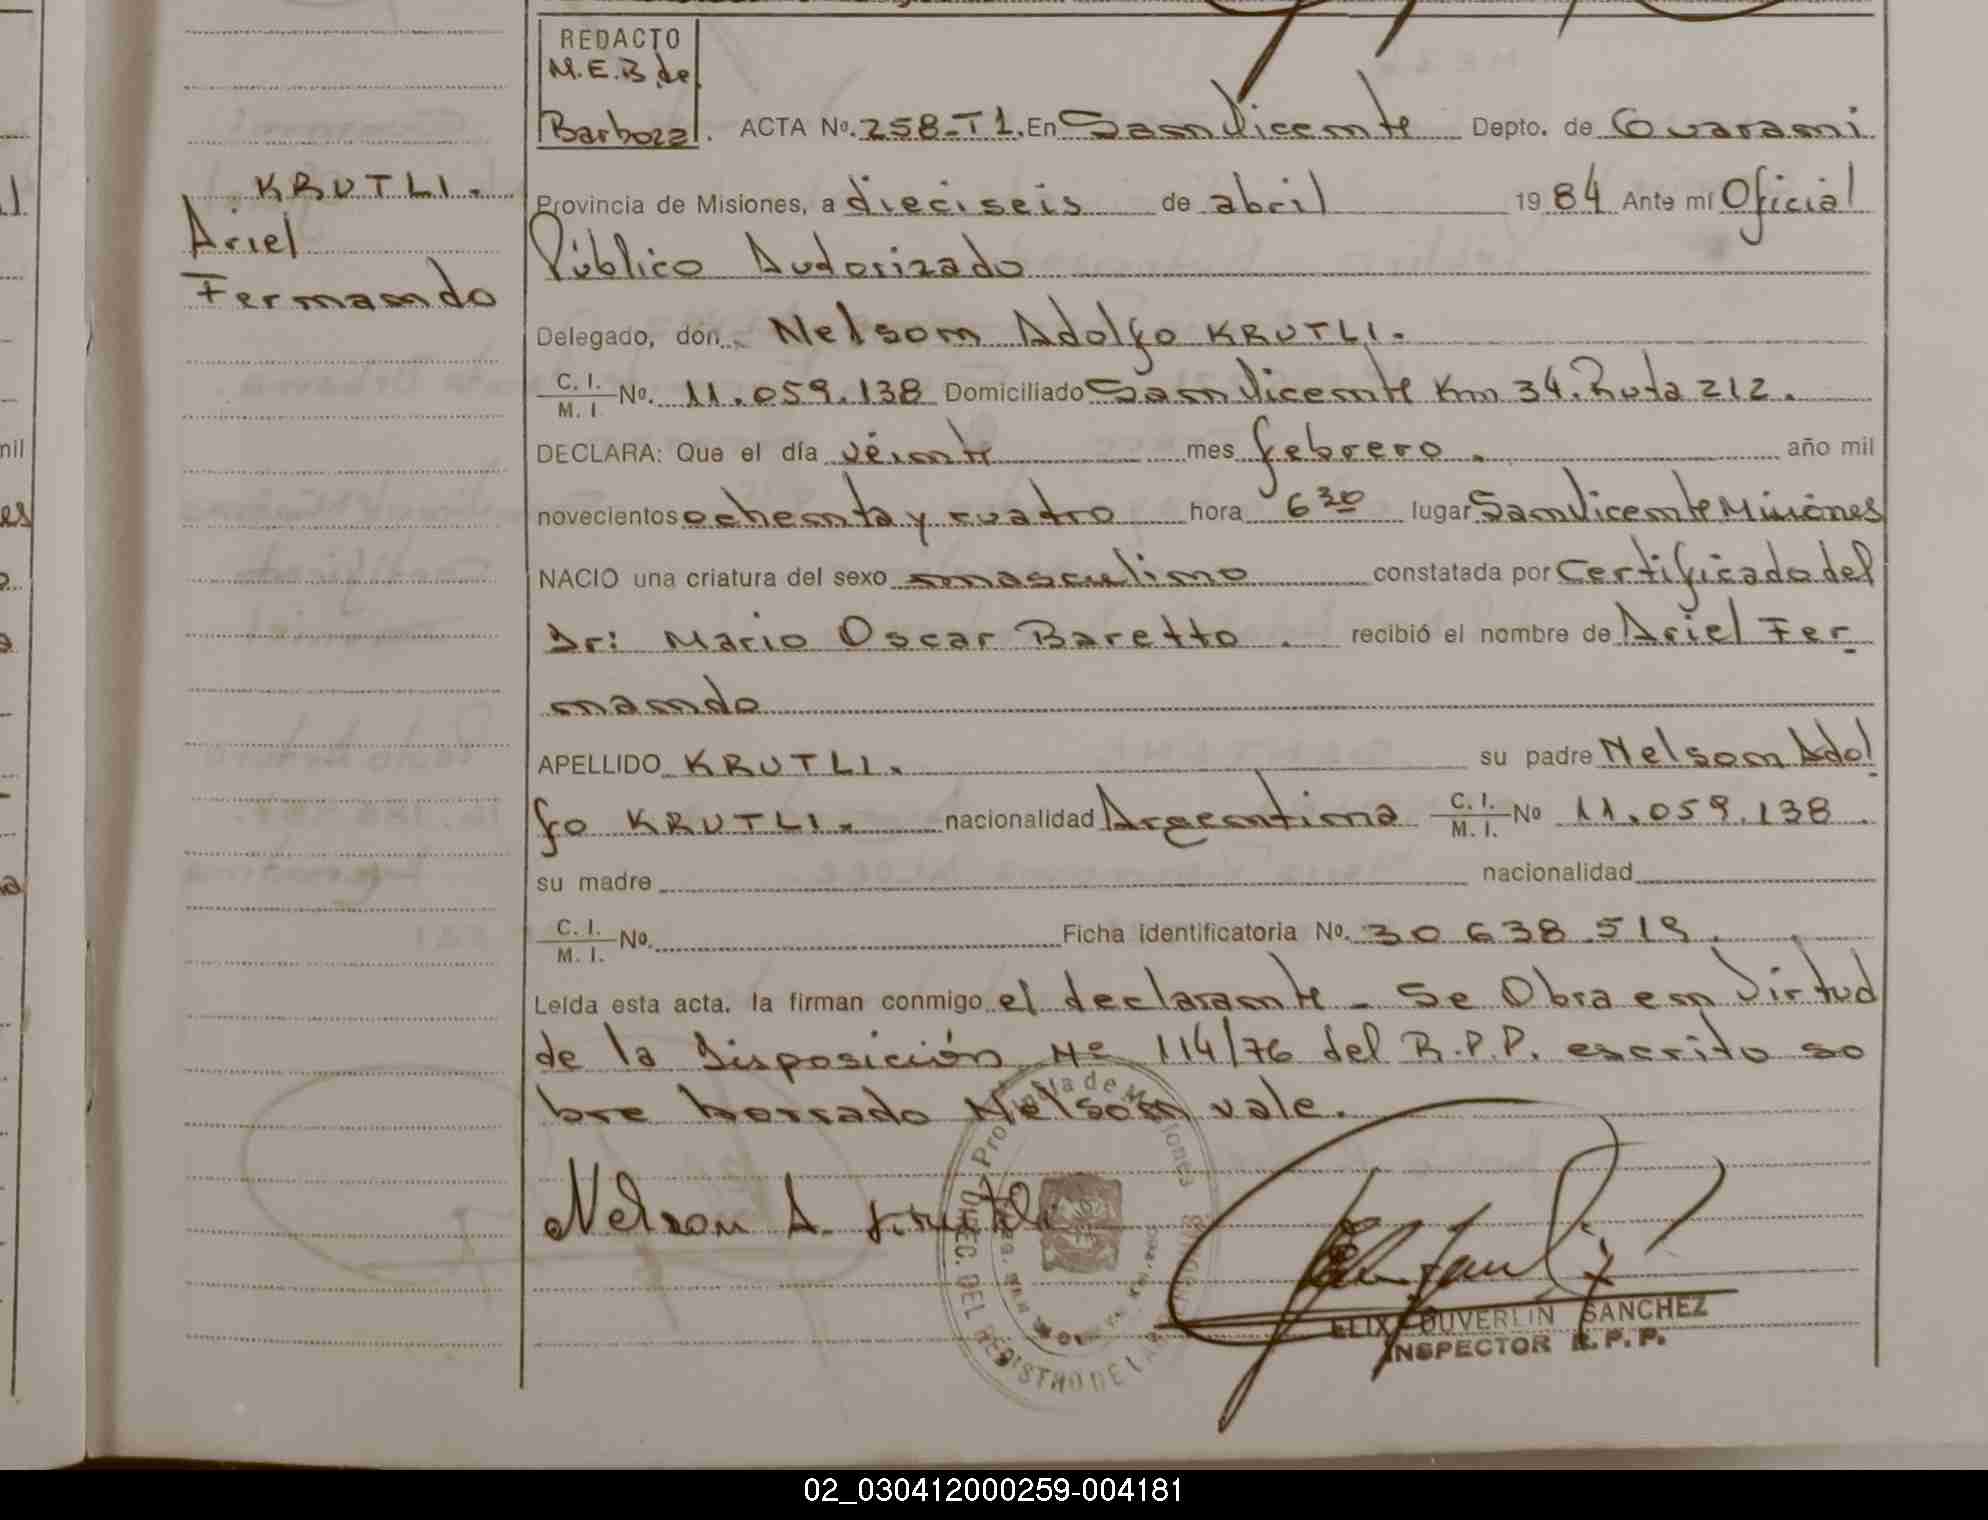 REDACTO
M.E.B de
Barboza.
ACTA No. 258-T1. En San Vicente Depto. de Guaraní
KRUTLI.
Ariel
Fernando
Provincia de Misiones, a dieciseis de abril 1984 Ante mí Oficial
Público Autorizado
Delegado, don Nelson Adolfo KRUTLI.
C. I. / M. I No. 11.059.138 Domiciliado San Vicente Km 34. Ruta 212.
DECLARA: Que el día veinte mes febrero. año mil
novecientos ochenta y cuatro hora 6 30 lugar San Vicente Misiones
NACIO una criatura del sexo masculino constatada por Certificado del
Dr: Mario Oscar Baretto. recibió el nombre de Ariel Fer
nando
APELLIDO KRUTLI. su padre Nelson Adol
fo KRUTLI. nacionalidad Argentina C. I. / M. I. No 11.059.138.
su madre nacionalidad
C. I. / M. I. No. Ficha identificatoria No. 30 638.519.
Leída esta acta, la firman conmigo el declarante - Se Obra en Virtud
de la Disposición Nº 114/76 del R.P.P. escrito so
bre borrado Nelson vale.
Provincia de Misiones
DIREC. DEL REGISTRO DE LAS PERSONAS
Nelson A. Krutli
ELIX DUVERLIN SANCHEZ
INSPECTOR R.P.P.
02_030412000259-004181